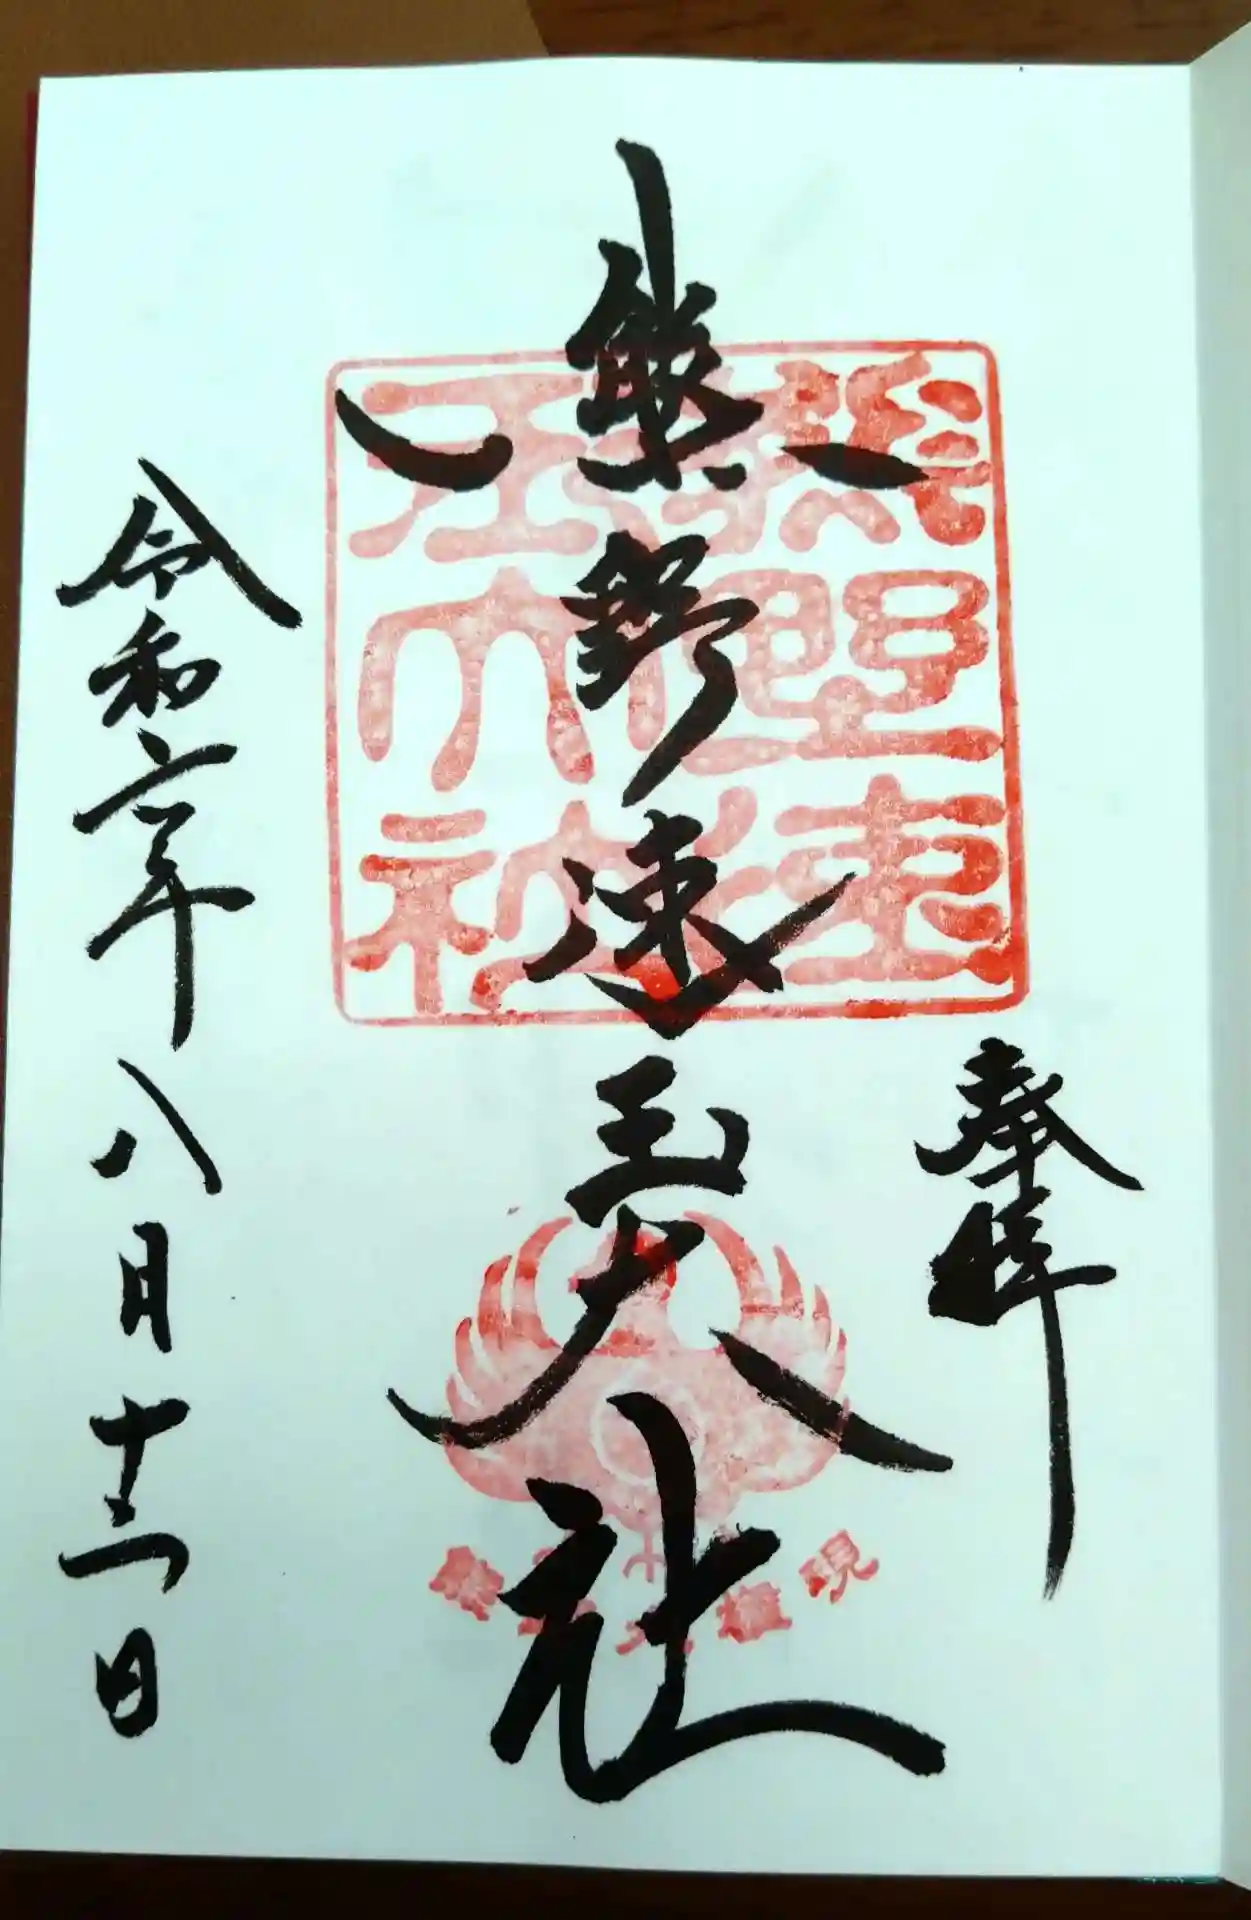 奉拝
熊野速玉大社
令和六年八月十二日
熊野速玉大社
熊野大権現